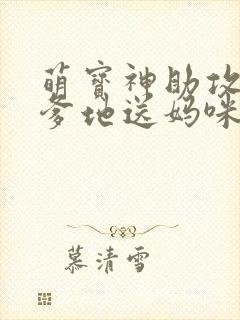 萌宝神助攻
爹地送妈咪
慕清雪